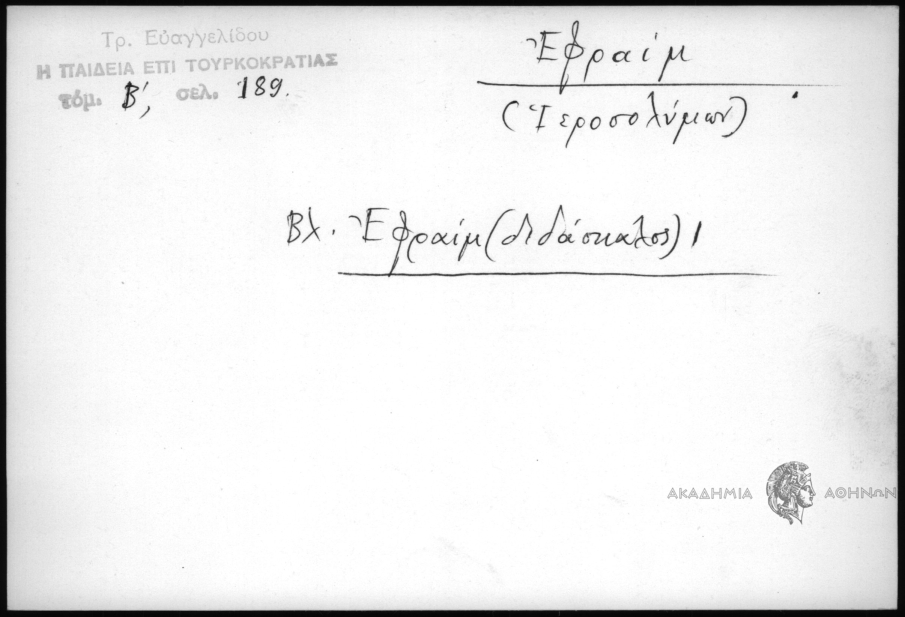 Τρ. Εὐαγγελίδου
Η ΠΑΙΔΕΙΑ ΕΠΙ ΤΟΥΡΚΟΚΡΑΤΙΑΣ
τόμ. Β', σελ. 189.
Ἐφραίμ
(Ἱεροσολύμων)
Βλ. Ἐφραίμ (διδάσκαλος) 1
ΑΚΑΔΗΜΙΑ ΑΘΗΝΩΝ